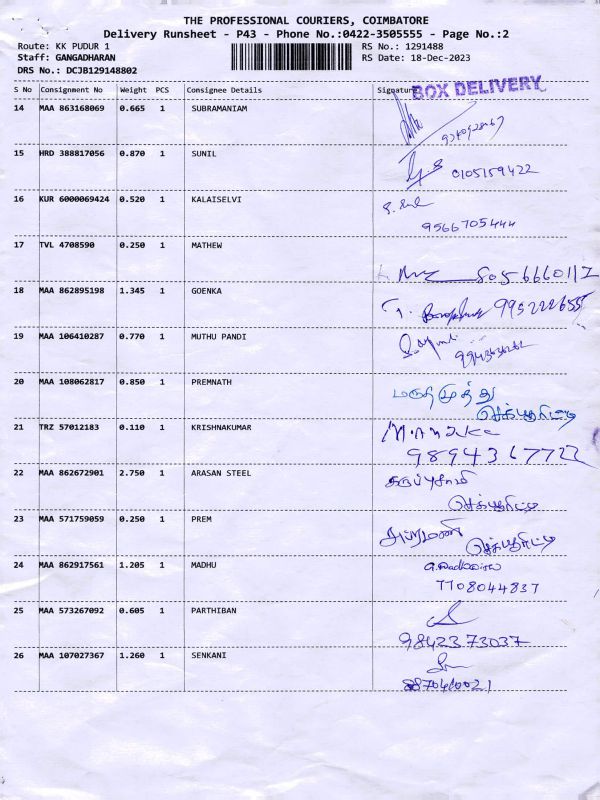 THE PROFESSIONAL COURIERS, COIMBATORE
Delivery Runsheet - P43 - Phone No.:0422-3505555 - Page No.:2
Route: KK PUDUR 1 RS No.: 1291488
Staff: GANGADHARAN RS Date: 18-Dec-2023
DRS No.: DCJB129148802
S No Consignment No Weight PCS Consignee Details Signature
BOX DELIVERY
14 MAA 863168069 0.665 1 SUBRAMANIAM
15 HRD 388817056 0.870 1 SUNIL
0105159422
16 KUR 6000069424 0.520 1 KALAISELVI
9566705444
17 TVL 4708590 0.250 1 MATHEW
18 MAA 862895198 1.345 1 GOENKA
995222655
19 MAA 106410287 0.770 1 MUTHU PANDI
20 MAA 108062817 0.850 1 PREMNATH
மருதமுத்து
செக்யூரிட்டி
21 TRZ 57012183 0.110 1 KRISHNAKUMAR
9894367722
22 MAA 862672901 2.750 1 ARASAN STEEL
கருப்புசாமி
செக்யூரிட்டி
23 MAA 571759059 0.250 1 PREM
செக்யூரிட்டி
24 MAA 862917561 1.205 1 MADHU
7708044837
25 MAA 573267092 0.605 1 PARTHIBAN
9842373037
26 MAA 107027367 1.260 1 SENKANI